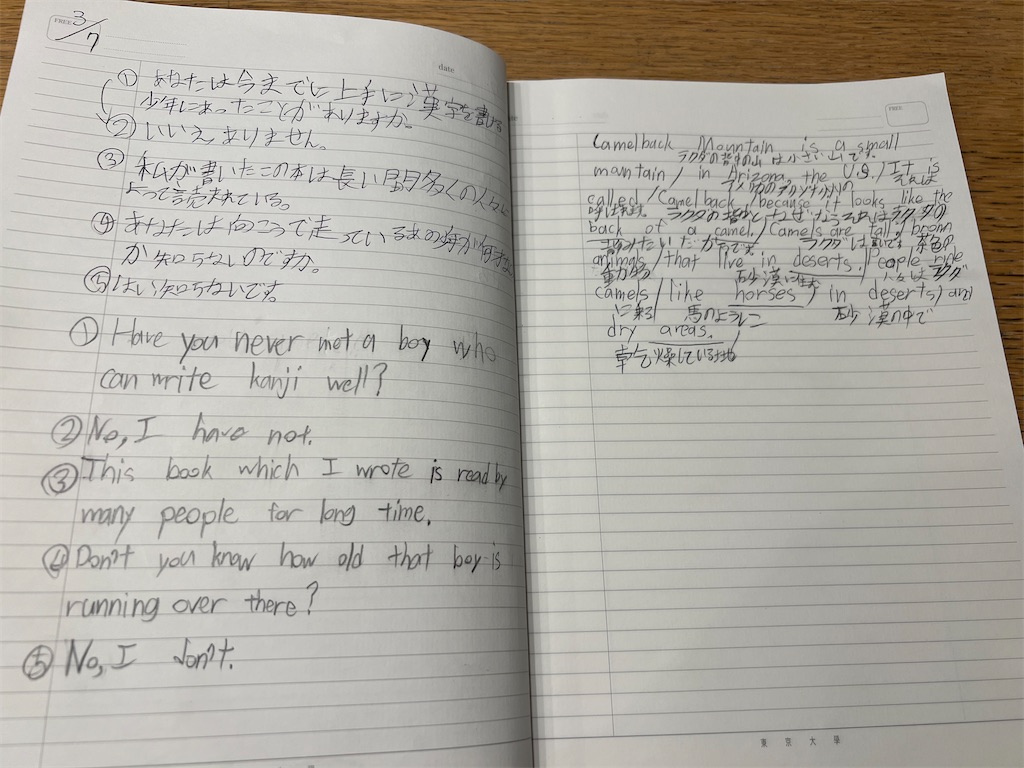 FREE
3/7
date
① あなたは今までに上手に漢字を書ける
少年にあったことがありますか。
② いいえ、ありません。
③ 私が書いたこの本は長い間多くの人々に
よって読まれている。
④ あなたは向こうで走っているあの少年が何才な
か知らないのですか。
⑤ はい知らないです。
① Have you never met a boy who
can write kanji well?
② No, I have not.
③ This book which I wrote is read by
many people for long time.
④ Don't you know how old that boy is
running over there?
⑤ No, I don't.
FREE
Camelback Mountain is a small
ラクダの背中の山 は小さい山です。
mountain / in Arizona, the U.S. / It is
それは
called / Camelback / because it looks like the
呼ばれます。 ラクダの なぜならそれはラクダの
back of a camel. / Camels are tall, brown
ラクダは 茶色の
animals / that live in deserts. / People ride
動物 砂漠に 人々はラクダ
camels / like horses / in deserts / and
に乗る 馬のように 砂漠の中で
dry areas.
乾燥している地
東京大學